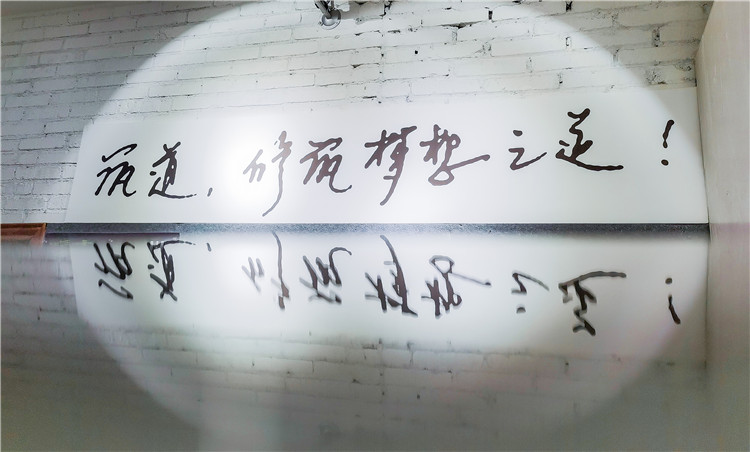 筑道，修筑梦想之道！